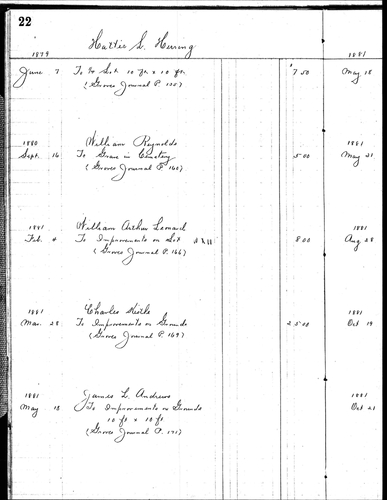 22
Hattie S. Hering
1879 1881
June 7 To Lot 10 ft. x 10 ft. 7 50 May 18
(Groves Journal P.
1880 William Reynolds 1881
Sept. 16 To Grave in Cemetery 5 00 May 21
(Groves Journal P. 160)
1881 William Arthur Leonard 1881
Feb. To Improvements on Lot 8 00 Aug 28
(Groves Journal P. 166)
1881 Charles 1881
Mar. 28 To Improvements on Grounds 25 00 Oct 19
(Groves Journal P. 169)
1881 James L. Andrews 1881
May 18 To Improvements on Grounds Oct 21
10 ft x 10 ft
(Groves Journal P. 171)